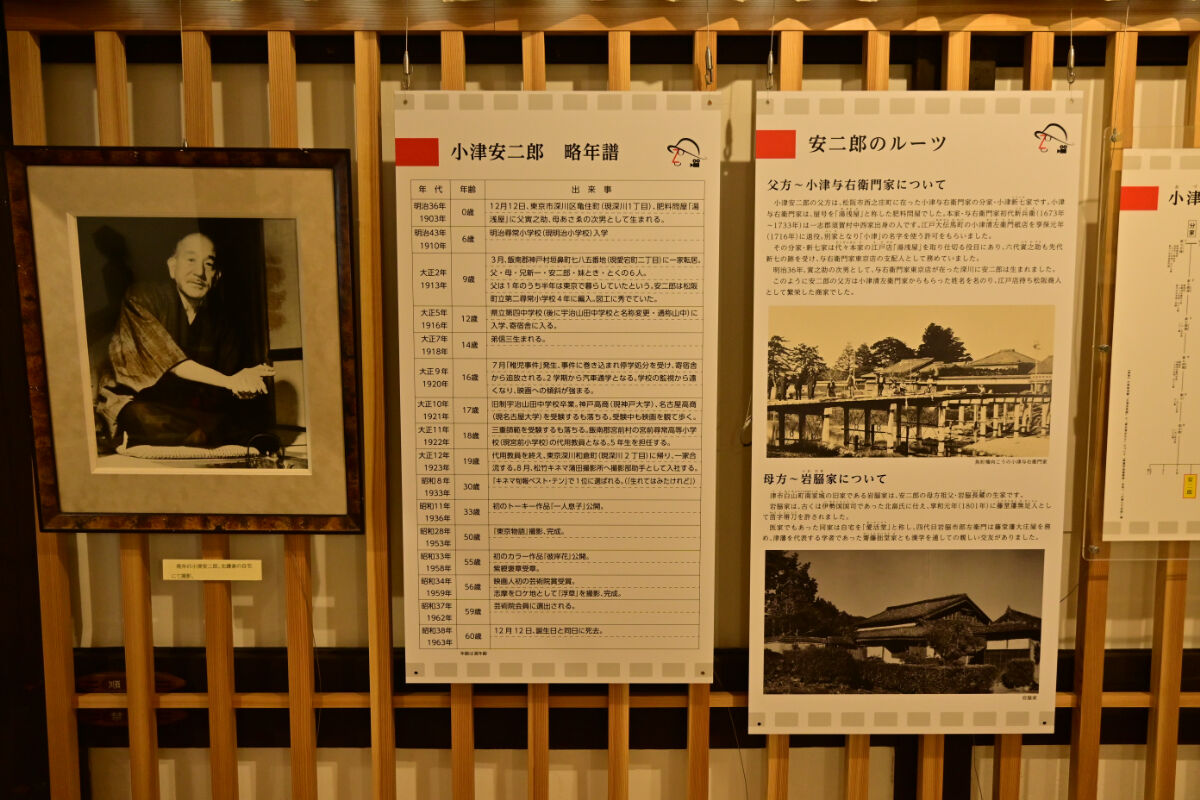 小津安二郎 略年譜
年 代 年齢 出 来 事
明治36年 1903年 0歳 12月12日、東京市深川区亀住町(現深川1丁目)、肥料問屋「湯
浅屋」に父寅之助、母あさゑの次男として生まれる。
明治43年 1910年 6歳 明治尋常小学校(現明治小学校)入学
大正2年 1913年 9歳 3月、飯南郡神戸村垣鼻町七八五番地(現愛宕町二丁目)に一家転居。
父・母・兄新一・安二郎・妹とき・とくの6人。
父は1年のうち半年は東京で暮らしていたという。安二郎は松阪
町立第二尋常小学校4年に編入。図工に秀でていた。
大正5年 1916年 12歳 県立第四中学校(後に宇治山田中学校と名称変更・通称山中)に
入学、寄宿舎に入る。
大正7年 1918年 14歳 弟信三生まれる。
大正9年 1920年 16歳 7月「稚児事件」発生。事件に巻き込まれ停学処分を受け、寄宿舎
から追放される。2学期から汽車通学となる。学校の監視から遠
くなり、映画への傾斜が強まる。
大正10年 1921年 17歳 旧制宇治山田中学校卒業。神戸高商(現神戸大学)、名古屋高商
(現名古屋大学)を受験するも落ちる。受験中も映画を観て歩く。
大正11年 1922年 18歳 三重師範を受験するも落ちる。飯南郡宮前村の宮前尋常高等小学
校(現宮前小学校)の代用教員となる。5年生を担任する。
大正12年 1923年 19歳 代用教員を終え、東京深川和倉町(現深川2丁目)に帰り、一家合
流する。8月、松竹キネマ蒲田撮影所へ撮影部助手として入社する。
昭和8年 1933年 30歳 「キネマ旬報ベスト・テン」で1位に選ばれる。(《生れてはみたけれど》)
昭和11年 1936年 33歳 初のトーキー作品「一人息子」公開。
昭和28年 1953年 50歳 「東京物語」撮影、完成。
昭和33年 1958年 55歳 初のカラー作品「彼岸花」公開。
紫綬褒章受章。
昭和34年 1959年 56歳 映画人初の芸術院賞受賞。
志摩をロケ地として「浮草」を撮影、完成。
昭和37年 1962年 59歳 芸術院会員に選出される。
昭和38年 1963年 60歳 12月12日、誕生日と同日に死去。
年齢は満年齢
安二郎のルーツ
父方~小津与右衛門家について
小津安二郎の父方は、松阪市西之庄町に在った小津与右衛門家の分家・小津新七家です。小津
与右衛門家は、屋号を「湯浅屋」と称した肥料問屋でした。本家・与右衛門家初代新兵衛(1673年
~1733年)は一志郡須賀村中西家出身の人です。江戸大伝馬町の小津清左衛門紙店を享保元年
(1716年)に退役。別家となり「小津」の名字を使う許可をもらいました。
その分家・新七家は代々本家の江戸店「湯浅屋」を取り仕切る役目にあり、六代寅之助も先代
新七の跡を受け、与右衛門家東京店の支配人として務めていました。
明治36年、寅之助の次男として、与右衛門家東京店が在った深川に安二郎は生まれました。
このように安二郎の父方は小津清左衛門家からもらった姓名を名のり、江戸店持ち松阪商人
として繁栄した商家でした。
魚町橋向こうの小津与右衛門家
母方~岩脇家について
津市白山町南家城の旧家である岩脇家は、安二郎の母方祖父・岩脇長蔵の生家です。
岩脇家は、古くは伊勢国国司であった北畠氏に仕え、享和元年(1801年)に藤堂藩無足人とし
て苗字帯刀を許されました。
医家でもあった同家は自宅を「愛活堂」と称し、四代目岩脇市郎左衛門は藤堂藩大庄屋を務
め、津藩を代表する学者であった齋藤拙堂家とも漢学を通しての親しい交友がありました。
岩脇家
晩年の小津安二郎。北鎌倉の自宅
にて撮影。
小津
分家
安二郎